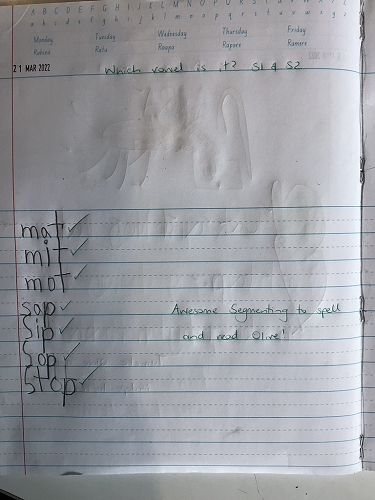 A B C D E F G H I J K L M N O P Q R S T U V W X Y Z
Monday Tuesday Wednesday Thursday Friday
Rāhina Rātū Rāapa Rāpare Rāmere
21 MAR 2022
Which vowel is it? S1 & S2
mat
mit
mot
sap
sip
sop
stop
Awesome segmenting to spell
and read Olive!